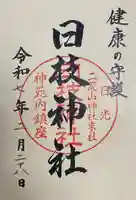 健康の守護
日光
二荒山神社末社
日枝神社
神苑内鎮座
令和七年二月二十八日